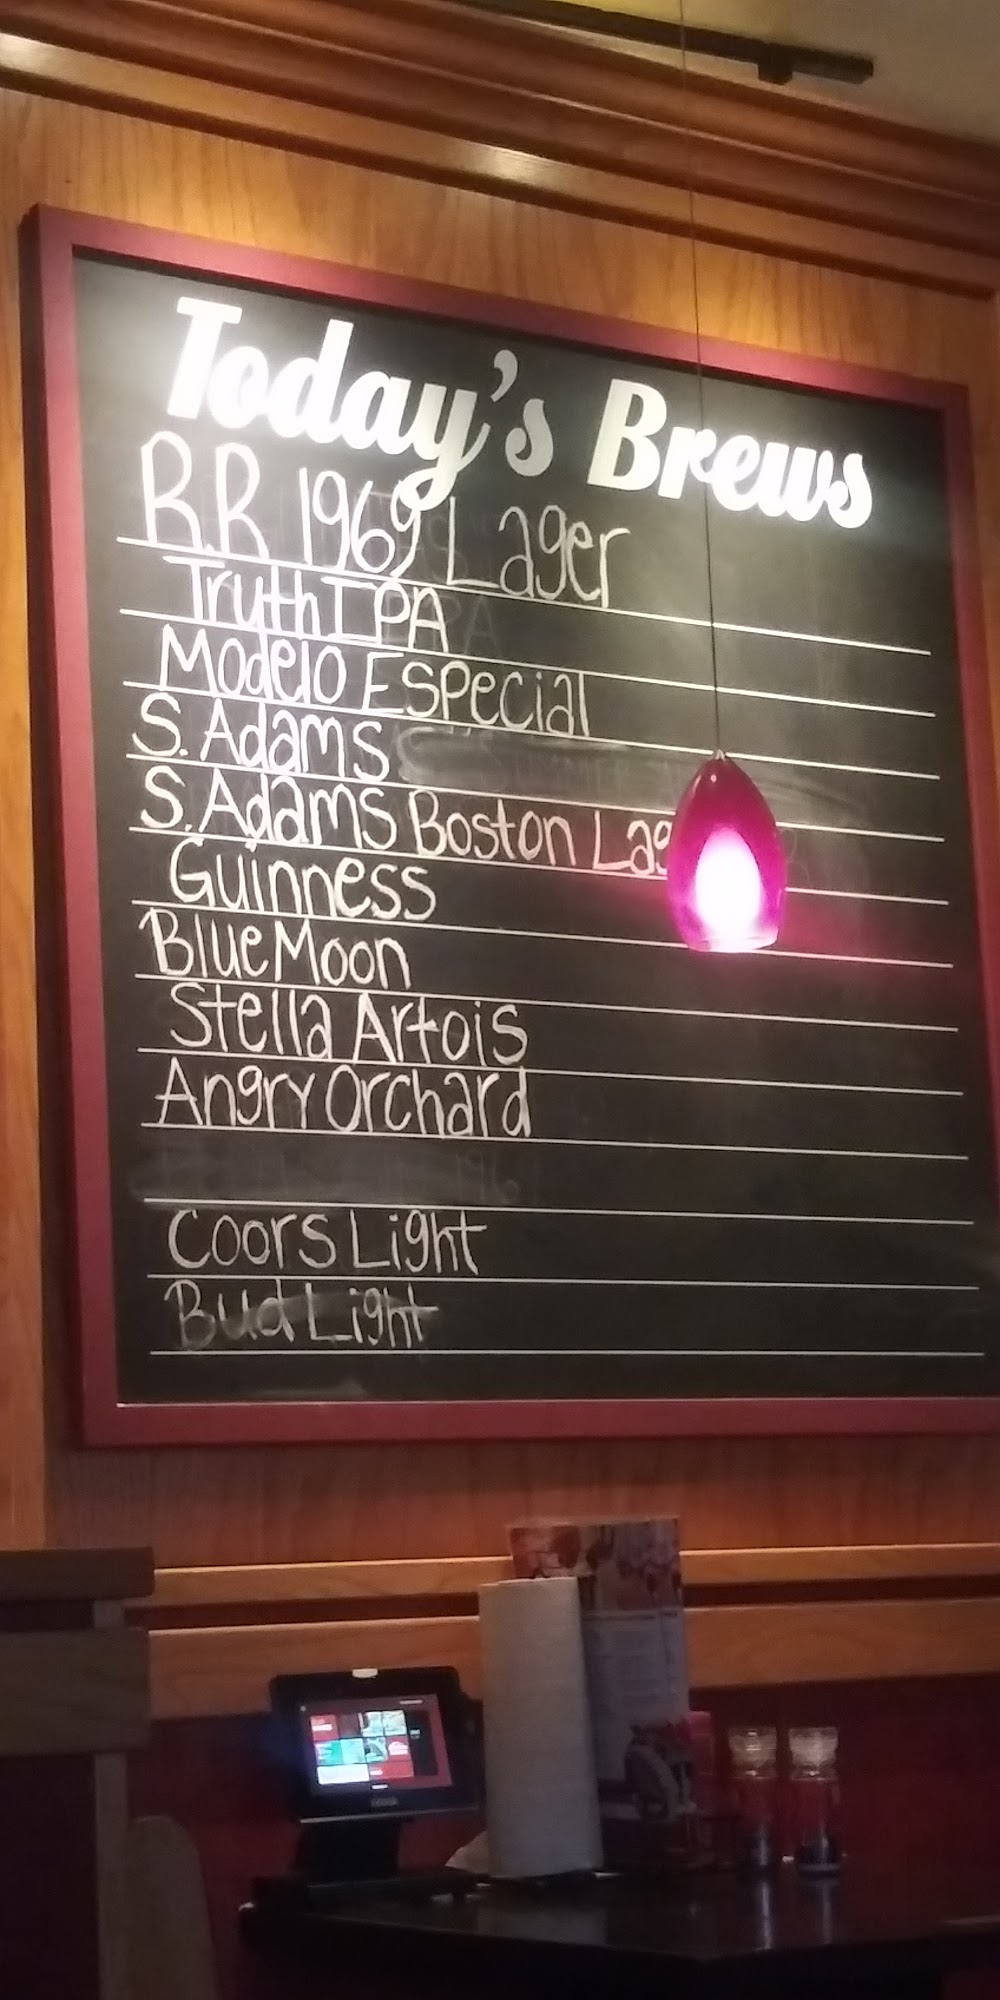 Today's Brews
R.R 1969 Lager
Truth IPA
Modelo Especial
S. Adams
S. Adams Boston Lag
Guinness
Blue Moon
Stella Artois
Angry Orchard
Coors Light
Bud Light